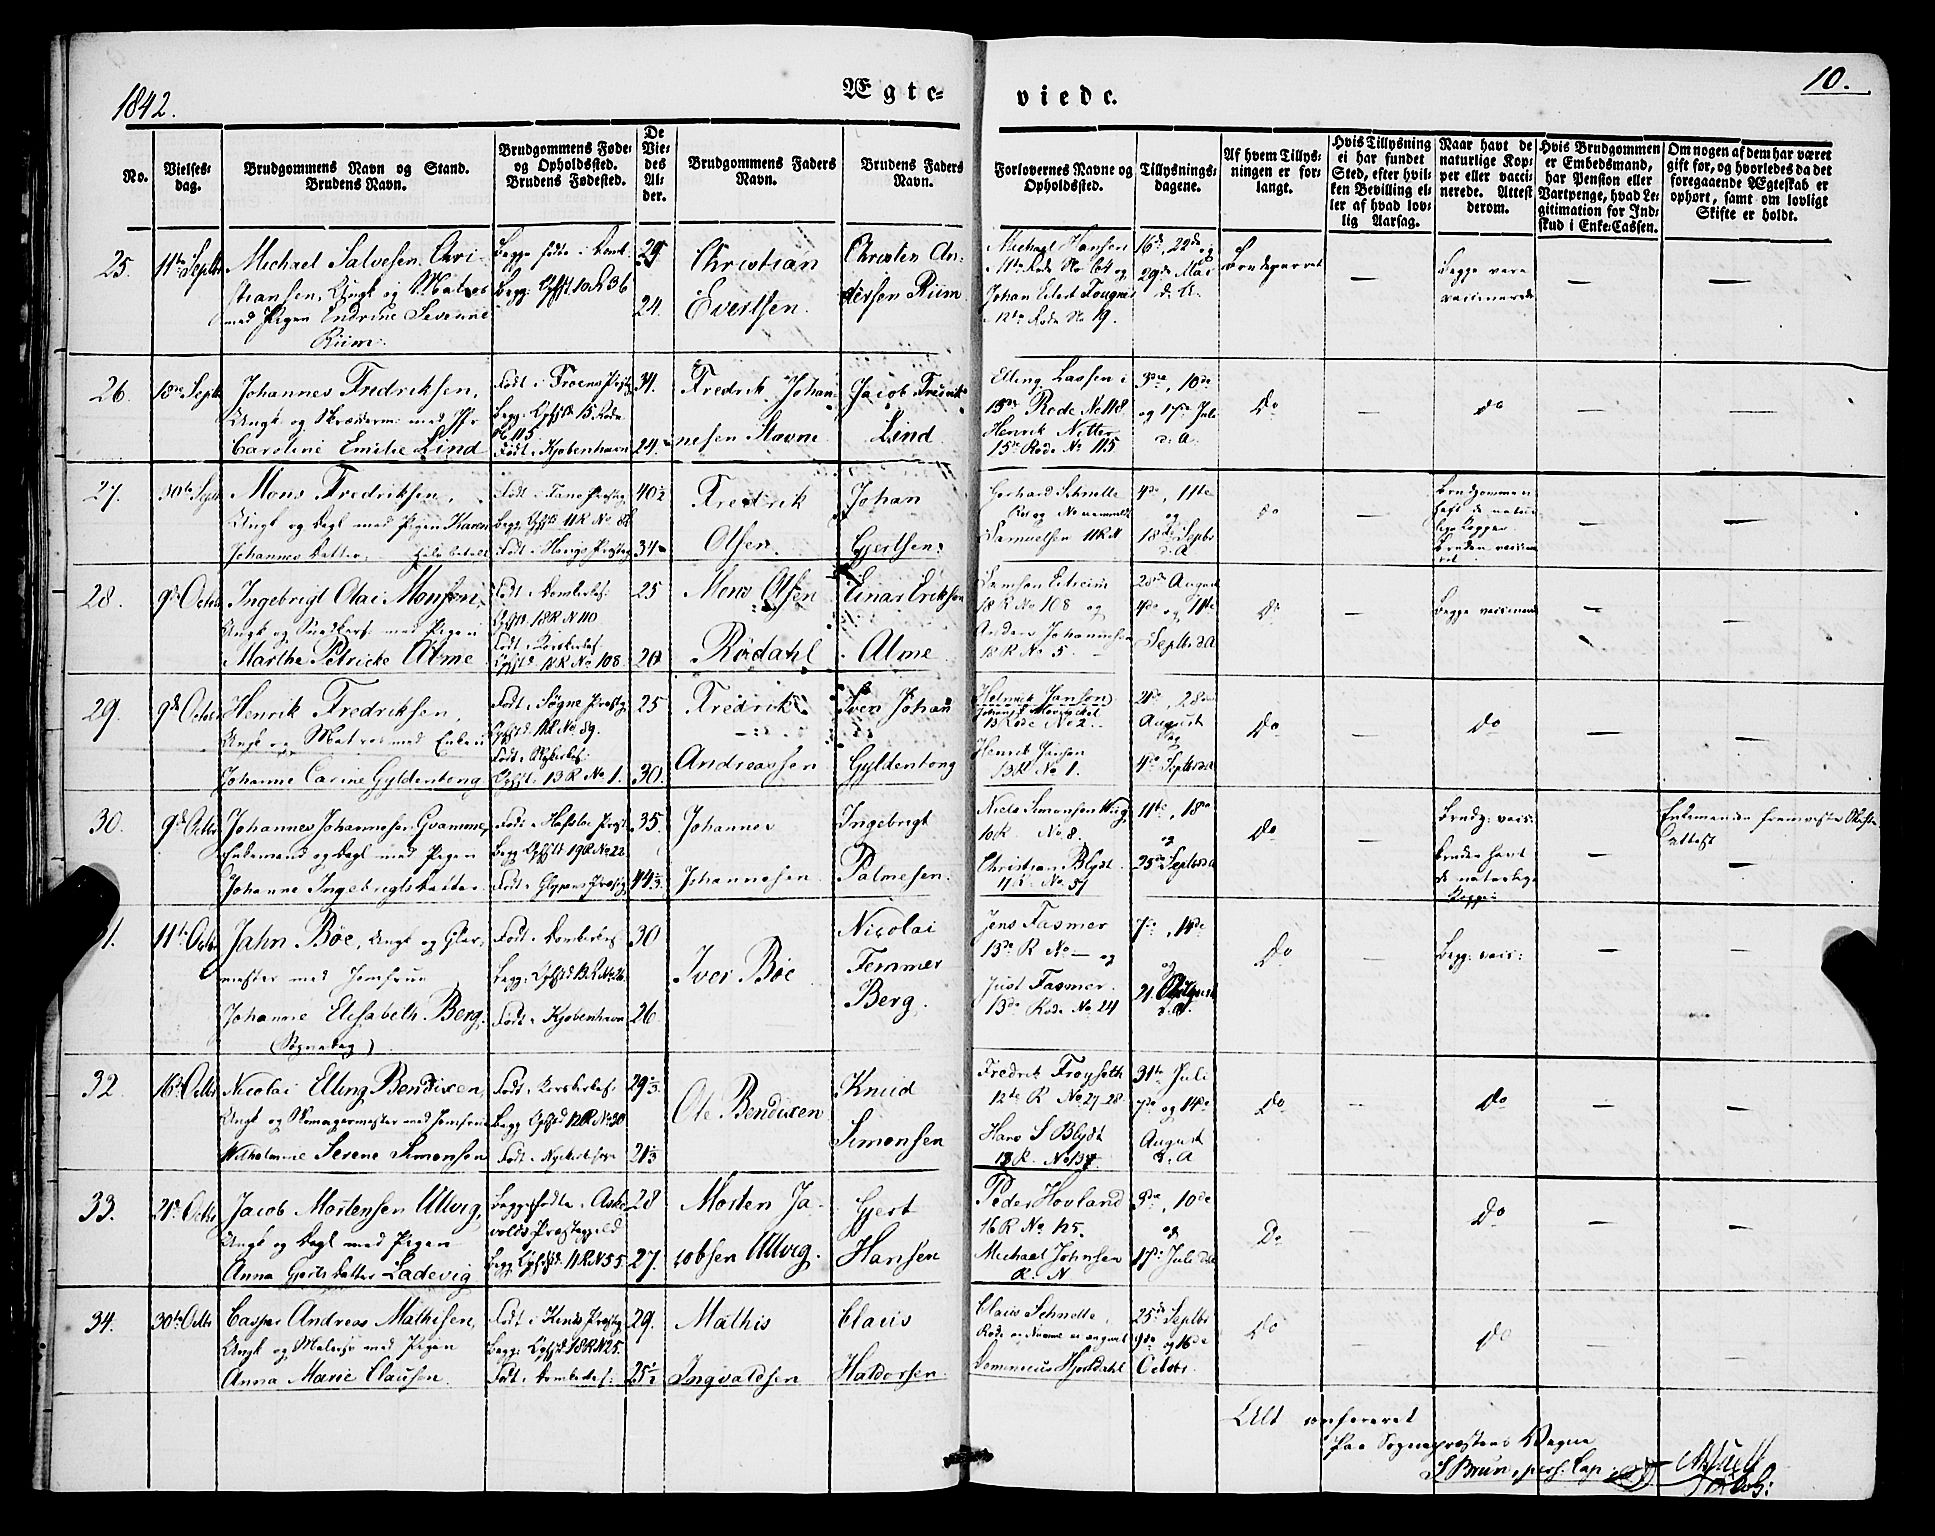 1842.
Ægte-
viede.
10.
No.
Vielses-
dag.
Brudgommens Navn og Stand.
Brudens Navn.
Brudgommens Føde-
og Opholdssted.
Brudens Fødested.
De
Vie-
des
Al-
der.
Brudgommens Faders
Navn.
Brudens Faders
Navn.
Forlovernes Navne og
Opholdssted.
Tillysnings-
dagene.
Af hvem Tillys-
ningen er for-
langt.
Hvis Tillysning
ei har fundet
Sted, efter hvil-
ken Bevilling el-
ler af hvad lov-
lig Aarsag.
Naar havt de
naturlige Kop-
per eller vacci-
nerede. Attest
derom.
Hvis Brudgommen
er Embedsmand,
har Pension eller
Vartpenge, hvad Le-
gitimation for Ind-
skud i Enke-Cassen.
Om nogen af dem har været
gift før, og hvorledes da det
foregaaende Ægteskab er
ophørt, samt om lovligt
Skifte er holdt.
25.
11te Septbr
Michael Salvesen Chri-
stiansen, Ungk og Matros
med Pigen Endrine Severine
Riim.
24.
Christian
Evertsen.
Christen An-
dersen Riim
Michael Hansen
11te Rode No 64 og
12te Rode No 19.
16de, 22de og
29de Mai
d. A.
Brudeparret
Begge vare
vaccinerede
26.
18de Septbr
Johannes Fredriksen,
Ungk og Skrædderm med Jfr
Caroline Emilie Lind
Begg. Opholdst 15 Rode
No 115
Født i Kjøbenhavn
34.
24
Fredrik Johan-
nesen Stavne
Jacob Fredrik
Lind
Elling Lassen i
15de Rode No 118
Henrik Nitter
15de Rode No 115
3die, 10de
og 17de Juli
d. A.
Do
do
27.
30te Septbr
Mons Fredriksen,
Ungk og Dagl med Pigen Karen
Johannes Datter
40½
34
Fredrik
Olsen.
Johan
Gjertsen.
Gerhard Schnelle
Samuelsen 11 R N
4de, 11te
og
18de Septbr
d. A
do
Brudgommen
haft de natur
lige Kopper
Bruden vaccine
ret
28.
9de Octbr
Ingebrigt Olai Monsen,
Ungk og Snedkers. med Pigen
Marthe Petricke Alme
Opholdst 18 R N 110
Opholdst 18 R No 108
25
Mons Olsen
Rørdahl
Einar Eriksen
Alme
18 R No 108 og
Anders Johannesen
18 R No 5.
28de August
4de og 11te
Septbr d A
Do
Begge vaccinerede
29.
9de Octbr
Henrik Fredriksen,
Ungk og Matros med Enken
Johanne Carine Gyldentong
Født i Søgne Præstg
25
30.
Fredrik
Andreassen
Sven Johan
Gyldentong
13 Rode No 2.
Henrik Jansen
13 R. No 1.
21de, 28de
August
og
4de Septbr d A
Do
Do
30.
9de Octbr
Johannes Johannesen Gvamme,
Enkemand og Dagl med Pigen
Johanne Ingebrigtsdatter
Født i Hafslo Præstg
Begg Opholdst 19 R No 22
35.
44½
Johannes
Johannesen
Ingebrigt
Palmesen.
Niels Simonsen Wiig
10 R No 8.
Christian Blydt
11te, 18de
og
25de Septbr d A
Do
Brudg: vacc:
Bruden havt
de naturlige
Kopper
Enkemanden fremviste Skifte
attest
31.
11te Octbr
Jahn Bøe, Ungk og Glar-
mester med Jomfrue
Johanne Elisabeth Berg.
(Søgnedag)
Født i Domkirkes
Født i Kjøbenhavn
30
26
Iver Bøe
Nicolai
Temmer
Berg.
Jens Fasmer
13de R No — og
Just Fasmer.
13de Rode No 24
7de, 14de
og
21. August
d. A.
Do
Begg: vacc:
32.
16de Octbr
Nicolai Elling Bendixen,
Ungk og Skomagermester med Jomfrue
Wilhelmine Serene Simonsen
Født i Korskirkes
Begg Opholdst 12 R No 30
Ole Bendixen
Knud
Simonsen
Fredrik Frøyseth
12te R No 27-28
Hans S Blydt
31te Juli
7de og 14de
August
d. A
Do
Do
33.
21de Octbr
Jacob Mortensen Ullvig,
Ungk og Dagl med Pigen
Anna Gjerts datter Ladevig
Begge fødte i Aske
volds Præstegjeld
Begg Opholdst 11 R N 55
28
27.
Morten Ja-
cobsen Ullvig.
Gjert
Hansen
Peder Hovland
16 R No 125.
Michael Johnsen
R. N
3die, 10de
og
17de Juli d A
Do
Do
34.
30te Octbr
Casper Andreas Mathisen,
Ungk og Malersv med Pigen
Anna Marie Clausen.
Født i Kinds Præstg
Begg: Opholdst 18 R N 25.
Født i Domkirkes:
29.
25½
Mathis
Ingvaldsen
Claus
Haldorsen
Claus Schnelle,
Rode og Numer ei angivet
Dominicus Hjorldahl
25de Septbr
9de og 16de
Octobr
Do
Do
Alt confereret
Paa Sognepræstens Vegne
S Brun, pers. Cap.